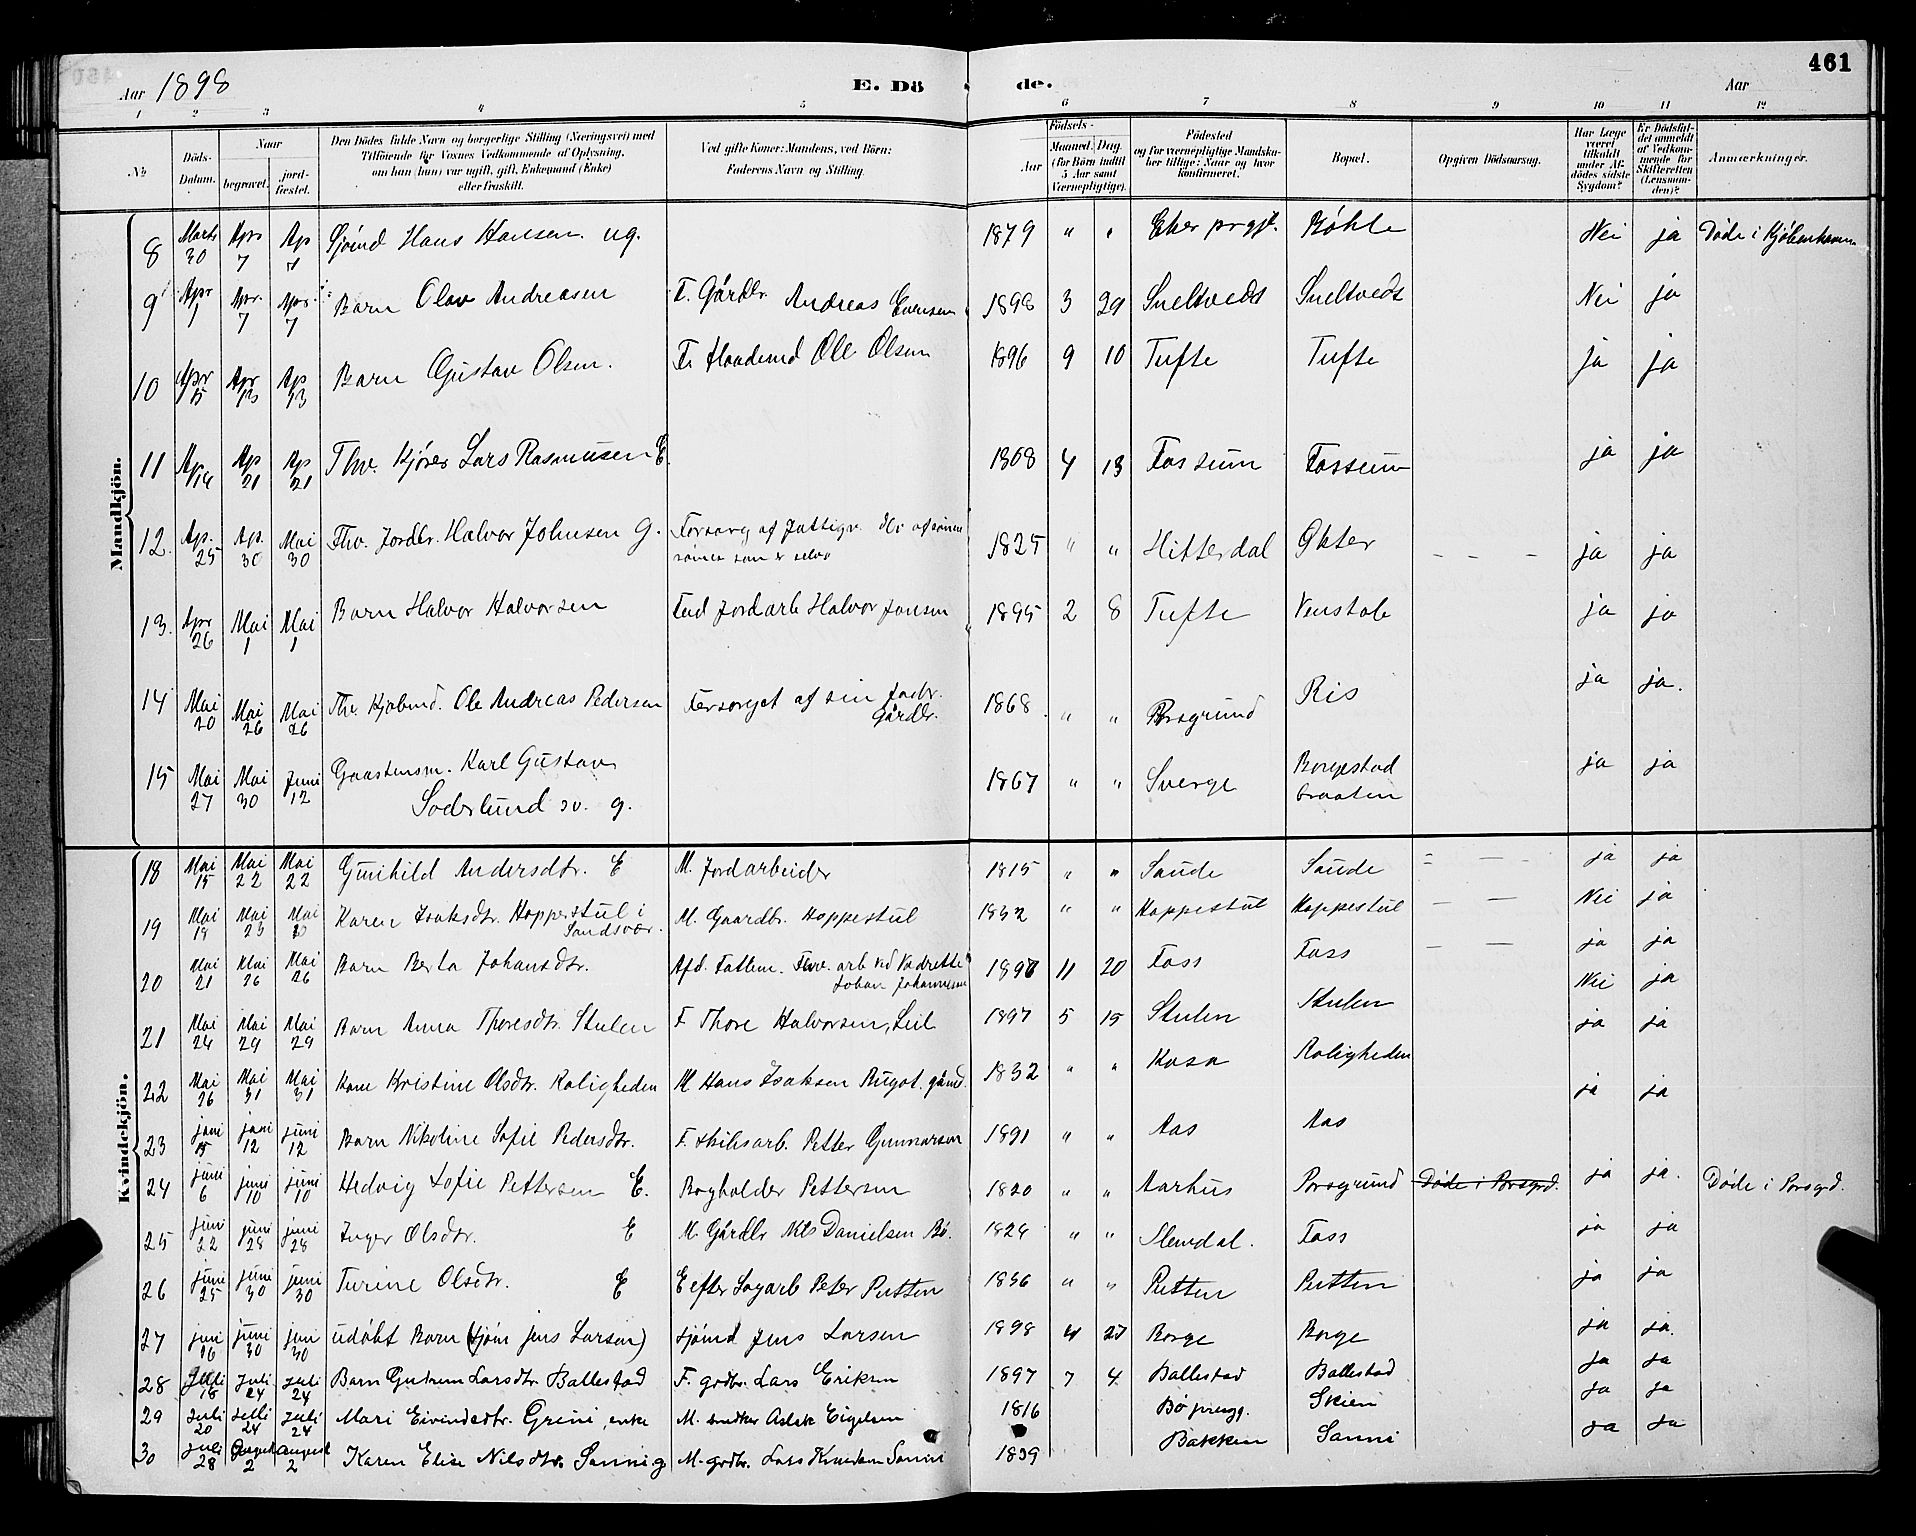 461
Aar 1898 E. Dö de. Aar
1 2 3 4 5 6 7 8 9 10 11 12
№ Döds-Datum. Naar begravet. jord-fæstet. Den Dödes fulde Navn og borgerlige Stilling (Næringsvei) med Tilföiende for Voxnes Vedkommende af Oplysning, om han (hun) var ugift, gift, Enkemand (Enke) eller fraskilt. Ved gifte Koner: Mandens, ved Börn: Faderens Navn og Stilling. Födsels- Aar Maaned. Dag. (for Börn indtil 5 Aar samt Værnepligtige). Födested og for værnepligtige Mandskaber tillige: Naar og hvor konfirmeret. Bopæl. Opgiven Dödsaarsag. Har Læge været tilkaldt under Afdödes sidste Sygdom? Er Dödsfaldet anmeldt af Vedkommende for Skifteretten (Lensmanden)? Anmærkninger.
Mandkjön.
8 Marts 30 Apr 7 Ap 7 Sjömd Hans Hansen. ug. 1879 " " Eker prgjl. Bøhle Nei ja Døde i Kjøbenhavn
9 Apr 1 Apr. 7 Apr. 7 Barn Olav Andreasen F. Gårdbr. Andreas Evensen 1898 3 29 Sneltvedt Sneltvedt Nei ja
10 Apr 15 Apr 13 Ap 13 Barn Gustav Olsen. F. Ole Olsen 1896 9 10 Tufte Tufte ja ja
11 Ap 14 Ap 21 Ap 21 Thv. Kjører Lars Rasmusen E. 1808 4 13 Fossum Fossum ja ja
12. Ap. 25 Ap. 30 Mai 30 Fhv. Jordbr. Halvor Johnsen g. Forsørg af Fattigv. 1825 " " Hitterdal Økter - - - ja ja
13. Apr 26 Mai 1 Mai 1 Barn Halvor Halvorsen Fad Jordarb Halvor Jensen 1895 2 8 Tufte Venstøb ja ja
14 Mai 20 Mai 26 Mai 26 Thv. Kjøbmd. Ole Andreas Pedersen Forsørget af sin Gårdbr. 1868 " " Porsgrund Ris ja ja.
15 Mai 27 Mai 30 Juni 12 Karl Gustav Soderlund sv. g. 1867 " " Sverge Borgestad braaten ja ja
Kvindekjön.
18 Mai 15 Mai 22 Mai 22 Gunhild Andersdtr. E M. Jordarbeider 1815 " " Saude Saude - - - ja ja
19 Mai 19 Mai 23 Mai Karen Isaksdtr. Hoppestul i Sandsvær. M. Gaardbr. Hoppestul 1832 " " Hoppestul Hoppestul - - Nei ja
20 Mai 21 Mai 26 Mai 26 Barn Berta Johansdtr. Afd. Fattem. Fhv. arb ved Johan Johannesen 1897 11 20 Foss Foss - - ja ja
21 Mai 24 Mai 29 Mai 29 Barn Anna Thoresdtr. Stulen F. Thore Halvorsen, Leil 1897 5 15 Stulen Stulen Nei ja
22 Mai 26 Mai 31 Mai 31 Kone Kristine Olsdtr. Roligheden M. Hans Isaksen 1832 " " Kasa Roligheden ja ja
23 juni 5 juni 12 juni 12 Barn Nikoline Sofie Pedersdtr. F. skibsarb. Petter Gunnarsen 1891 " " Aas Aas ja ja
24 juni 6 juni 10 juni 10 Hedvig Sofie Pettersen E. Bogholder Pettersen 1820 " " Aarhus Porsgrund Døde i Porsgrd. ja ja. Døde i Porsgrd.
25 juni 22 juni 28 juni 28 Inger Olsdtr. E M. Gårdbr Nils Danielsen Bø. 1824 " " Slemdal. Foss ja ja
26 juni 25 juni 30 juni 30 Turine Olsdtr. E E efter Sagarb Peter Putten 1836 " " Putten Putten ja ja
27 juni 26 juni 30 jun 30 udøbt Barn (sjöm jens Larsen) sjömd Jens Larsen 1898 4 27 Borge Borge ja ja.
28 Juli 18 Juli 24 Juli 24 Barn Gudrun Larsdtr. Ballestad F. grdbr. Lars Eriksen 1897 7 4 Ballestad Ballestad ja ja
29 Juli 20 Juli 24 Juli 24 Mari Eivindsdtr. Grini, enke M. snedker Aslak Eigelsen 1816 Bø prengj. Skien ja ja
30 Juli 28 August 2 August 2 Karen Elise Nilsdtr. Sanni g M. grdbr. Lars Knudsen Sanni 1839 Bakken Sanni ja ja